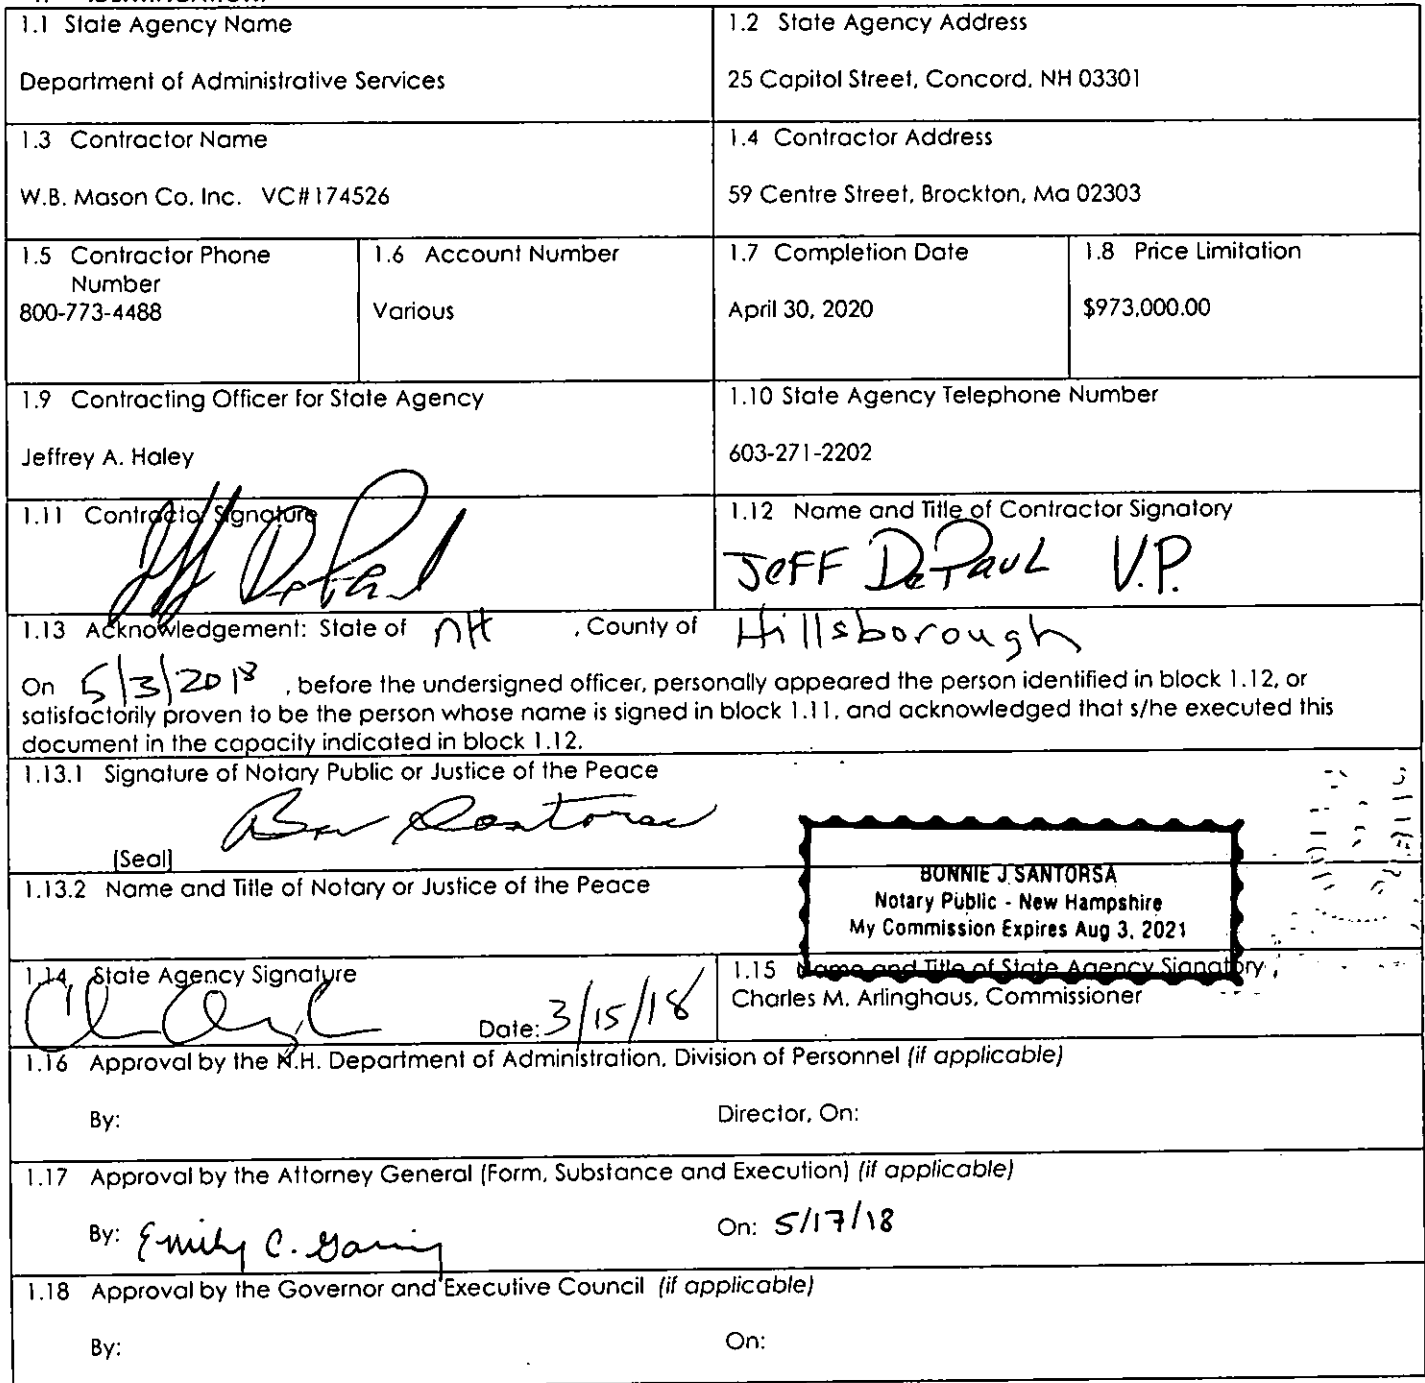 1.1 State Agency Name
Department of Administrative Services
1.2 State Agency Address
25 Capitol Street, Concord, NH 03301
1.3 Contractor Name
W.B. Mason Co. Inc. VC#174526
1.4 Contractor Address
59 Centre Street, Brockton, Ma 02303
1.5 Contractor Phone
Number
800-773-4488
1.6 Account Number
Various
1.7 Completion Date
April 30, 2020
1.8 Price Limitation
$973,000.00
1.9 Contracting Officer for State Agency
Jeffrey A. Haley
1.10 State Agency Telephone Number
603-271-2202
1.11 Contractor Signature
Jeff DePaul
1.12 Name and Title of Contractor Signatory
Jeff DePaul V.P.
1.13 Acknowledgement: State of NH , County of Hillsborough
On 5/3/2018 , before the undersigned officer, personally appeared the person identified in block 1.12, or
satisfactorily proven to be the person whose name is signed in block 1.11, and acknowledged that s/he executed this
document in the capacity indicated in block 1.12.
1.13.1 Signature of Notary Public or Justice of the Peace
[Seal]
BONNIE J SANTORSA
Notary Public - New Hampshire
My Commission Expires Aug 3, 2021
1.13.2 Name and Title of Notary or Justice of the Peace
1.14 State Agency Signature
Date: 3/15/18
1.15 Name and Title of State Agency Signatory
Charles M. Arlinghaus, Commissioner
1.16 Approval by the N.H. Department of Administration, Division of Personnel (if applicable)
By: Director, On:
1.17 Approval by the Attorney General (Form, Substance and Execution) (if applicable)
By: Emily C. On: 5/17/18
1.18 Approval by the Governor and Executive Council (if applicable)
By: On: